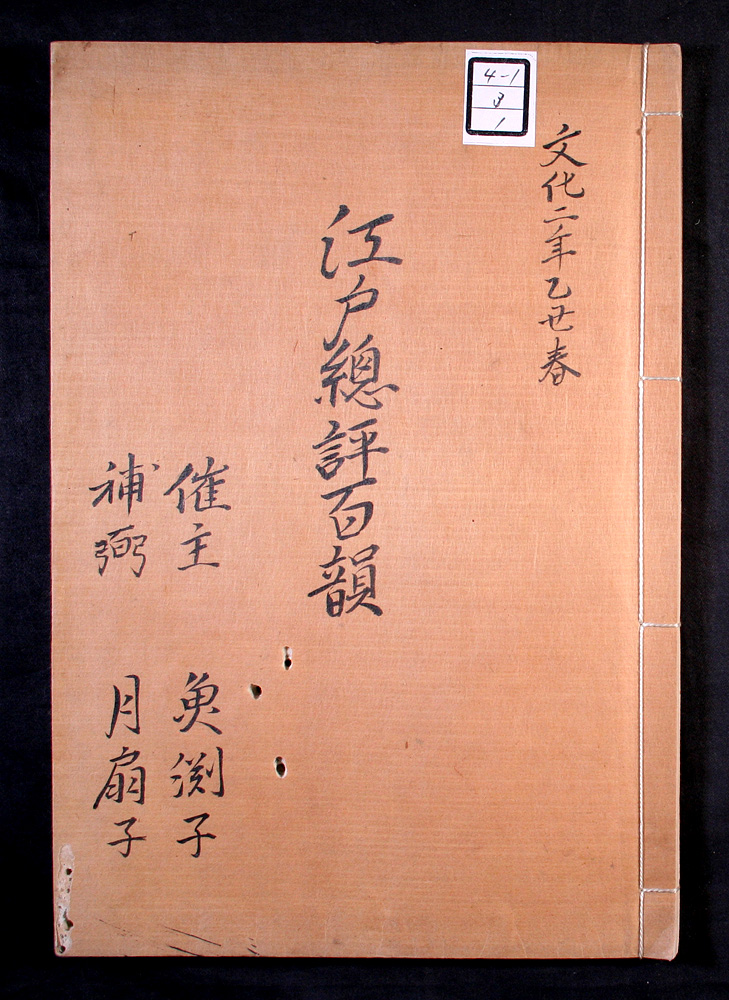 4-1
3
1
文化二年乙丑春
江戸總評百韻
催主 魚渕子
補弼 月扇子